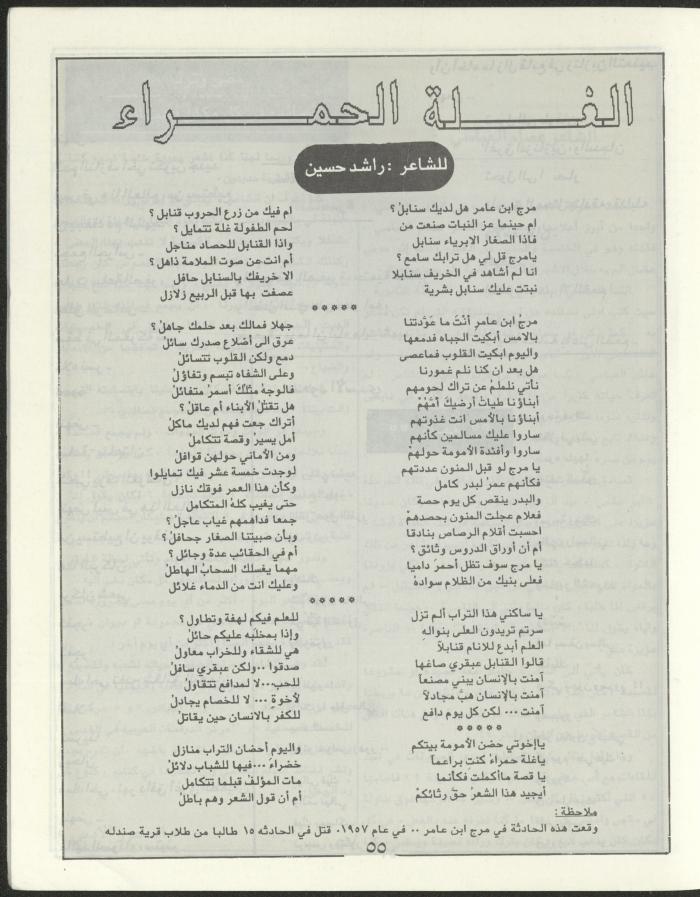 الغـلـة الحمـــراء
للشاعر : راشد حسين
مرج ابن عامر هل لديك سنابلُ ؟ ام فيك من زرع الحروب قنابل ؟
ام حينما عز النبات صنعت من لحم الطفولة غلة تتمايل ؟
فاذا الصغار الابرياء سنابل واذا القنابل للحصاد مناجل
يامرج قل لي هل ترابك سامع ؟ أم انت عن صوت الملامة ذاهل ؟
انا لم أشاهد في الخريف سنابلا الا خريفك بالسنابل حافل
نبتت عليك سنابل بشرية عصفت بها قبل الربيع زلازل
*****
مرجُ ابن عامرِ أنْتَ ما عَوَّدتنا جهلا فمالك بعد حلمك جاهلُ ؟
بالامس أبكيت الجباه فدمعها عرق الى أضلاع صدرك سائلُ
واليوم ابكيت القلوب فماعصى دمع ولكن القلوب تتسائلُ
هل بعد ان كنا نلم غمورنا وعلى الشفاه تبسم وتفاؤلُ
نأتي نلملمُ عن تراك لحومهم فالوجهُ مثلكَ أسمرُ متفائلُ
أبناؤنا طياتُ أرضيكَ أمُهُمْ هل تقتلُ الأبناء أم عاقلُ ؟
أبناؤنا بالأمس انت غذوتهم أتراك جعت فهم لديك مآكلُ
ساروا عليك مسالمين كأنهم أمل يسيرُ وقصة تتكاملُ
ساروا وأفئدة الأمومة حولهمْ ومن الأماني حولهن قوافلُ
يا مرج لو قبل المنون عددتهم لوجدت خمسة عشر فيك تمايلوا
فكأنهم عمرُ لبدر كامل وكأن هذا العمر فوقك نازل
والبدر ينقص كل يوم حصة حتى يغيب كلهُ المتكامل
فعلام عجلت المنون بحصدهمْ جمعا فداهمهم غياب عاجلُ ؟
احسبت أقلام الرصاص بنادقا وبأن صبيتنا الصغار جحافلُ ؟
أم أن أوراق الدروس وثائق ؟ أم في الحقائب عدة وجائل ؟
يا مرج سوف تظل أحمرَ داميا مهما يغسلك السحابُ الهاطلُ
فعلى بنيك من الظلام سوادهُ وعليك انت من الدماء غلائل
*****
يا ساكني هذا التراب ألم تزل للعلم فيكم لهفة وتطاول ؟
سرتم تريدون العلى بنوالهِ وإذا بمخلبه عليكم حائلُ
العلم أبدع للانام قنابلاً هي للشقاء وللخراب معاولُ
قالوا القنابل عبقري صاغها صدقوا ..ولكن عبقري سافلُ
آمنت بالإنسان يبني مصنعاً للحب...لا لمدافع تتقاولُ
آمنت بالإنسان هبَّ مجادلاً لأخوةٍ ... لا للخصام يجادلُ
آمنت ... لكن كل يوم دافع للكفر بالانسان حين يقاتلُ
*****
ياإخوتي حضن الأمومة بيتكم واليوم أحضان التراب منازل
ياغلة حمراءُ كنتِ براعماً خضراءَ ...فيها للشباب دلائلُ
يا قصة مااكملت فكأنما مات المؤلفُ قبلما تتكامل
أيجيد هذا الشعرُ حقَّ رثائكمْ أم أن قول الشعر وهم باطلُ
ملاحظة :
وقعت هذه الحادثة في مرج ابن عامر .. في عام ١٩٥٧. قتل في الحادثه ١٥ طالبا من طلاب قرية صندله
٥٥